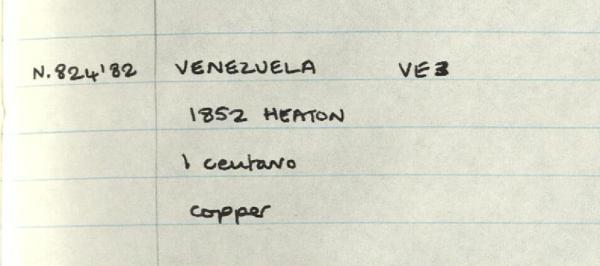 N.824'82 VENEZUELA VE3
1852 HEATON
1 centavo
copper